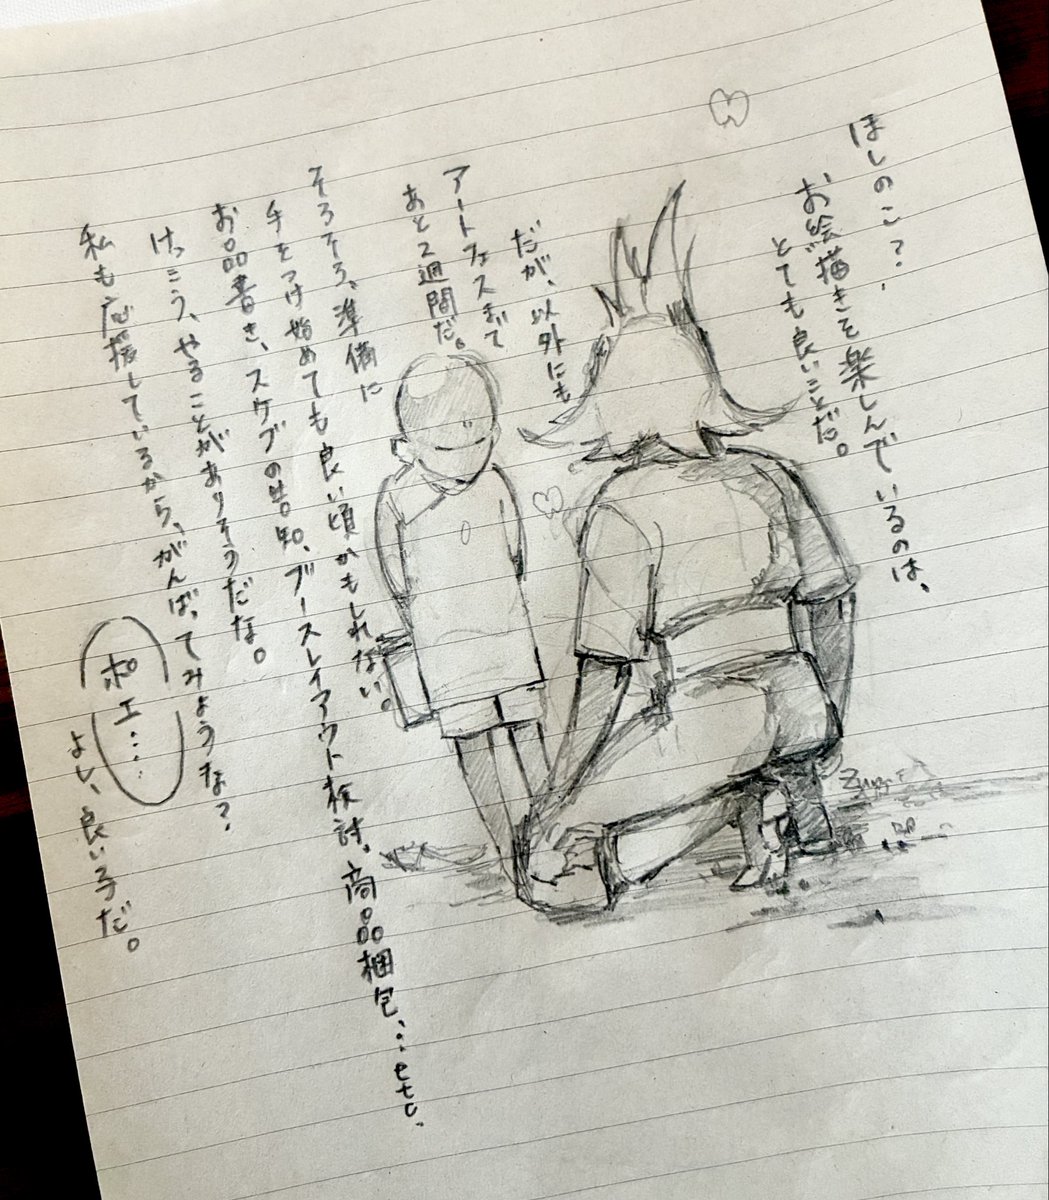 ほしのこ?
お絵描きを楽しんでいるのは、
とても良いことだ。
だが、以外にも
アートフェスまで
あと2週間だ。
そろそろ、準備に
手をつけ始めても良い頃かもしれない。
お品書き、スケブの告知、ブースレイアウト検討、商品梱包、…etc.
けっこう、やることがありそうだな。
私も応援しているから、がんばってみような?
ポエ…
よし、良い子だ。